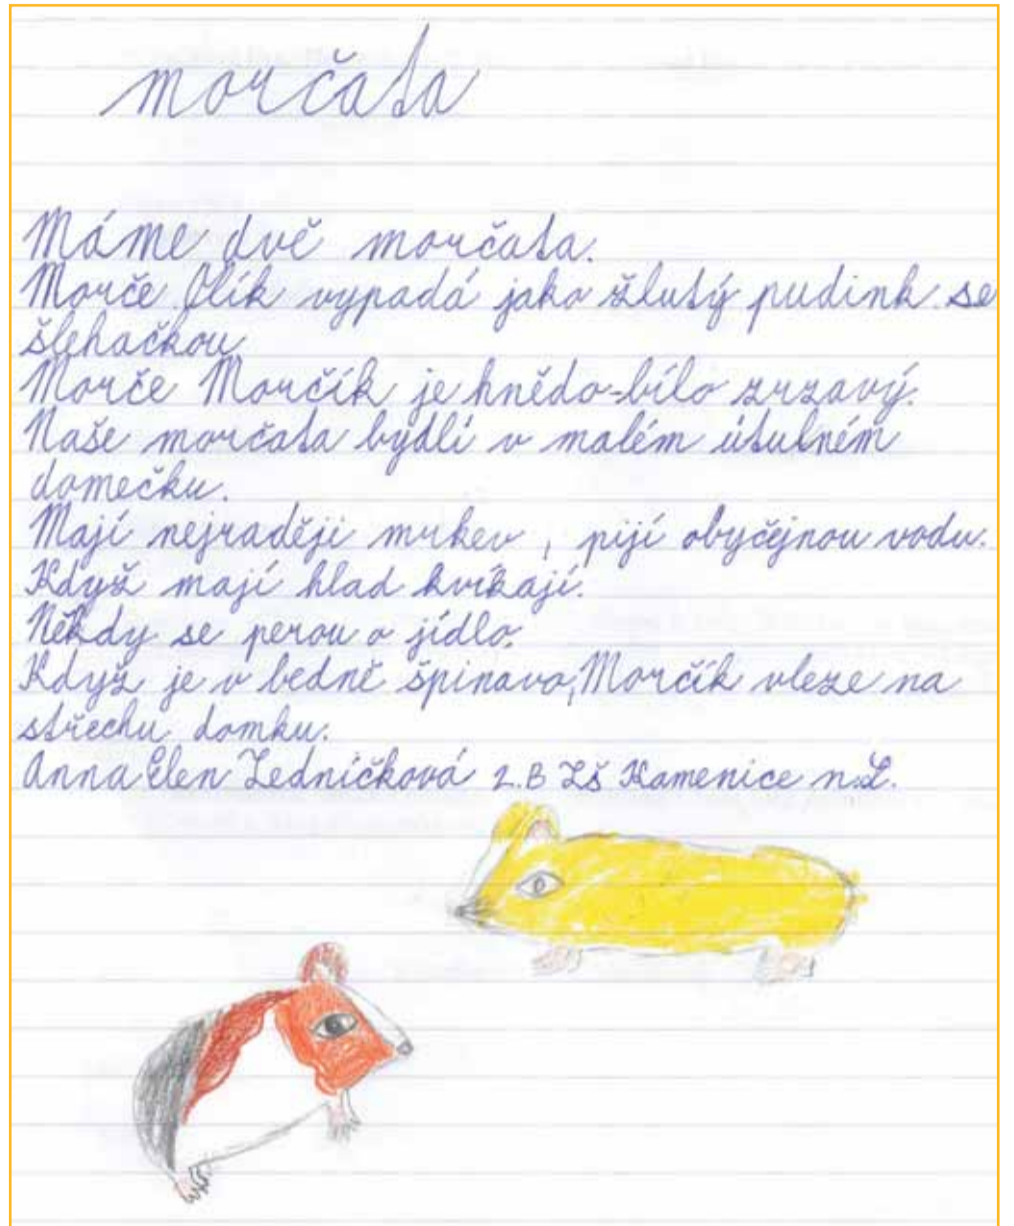 morčata
Máme dvě morčata.
Morče Olík vypadá jako žlutý pudink se
šlehačkou.
Morče Morčík je hnědo-bílo zrzavý.
Naše morčata bydlí v malém útulném
domečku.
Mají nejraději mrkev, pijí obyčejnou vodu.
Když mají hlad kvíkají.
Někdy se perou o jídlo.
Když je v bedně špinavo, Morčík vleze na
střechu domku.
Anna Elen Ledničková 2.B ZŠ Kamenice n.L.